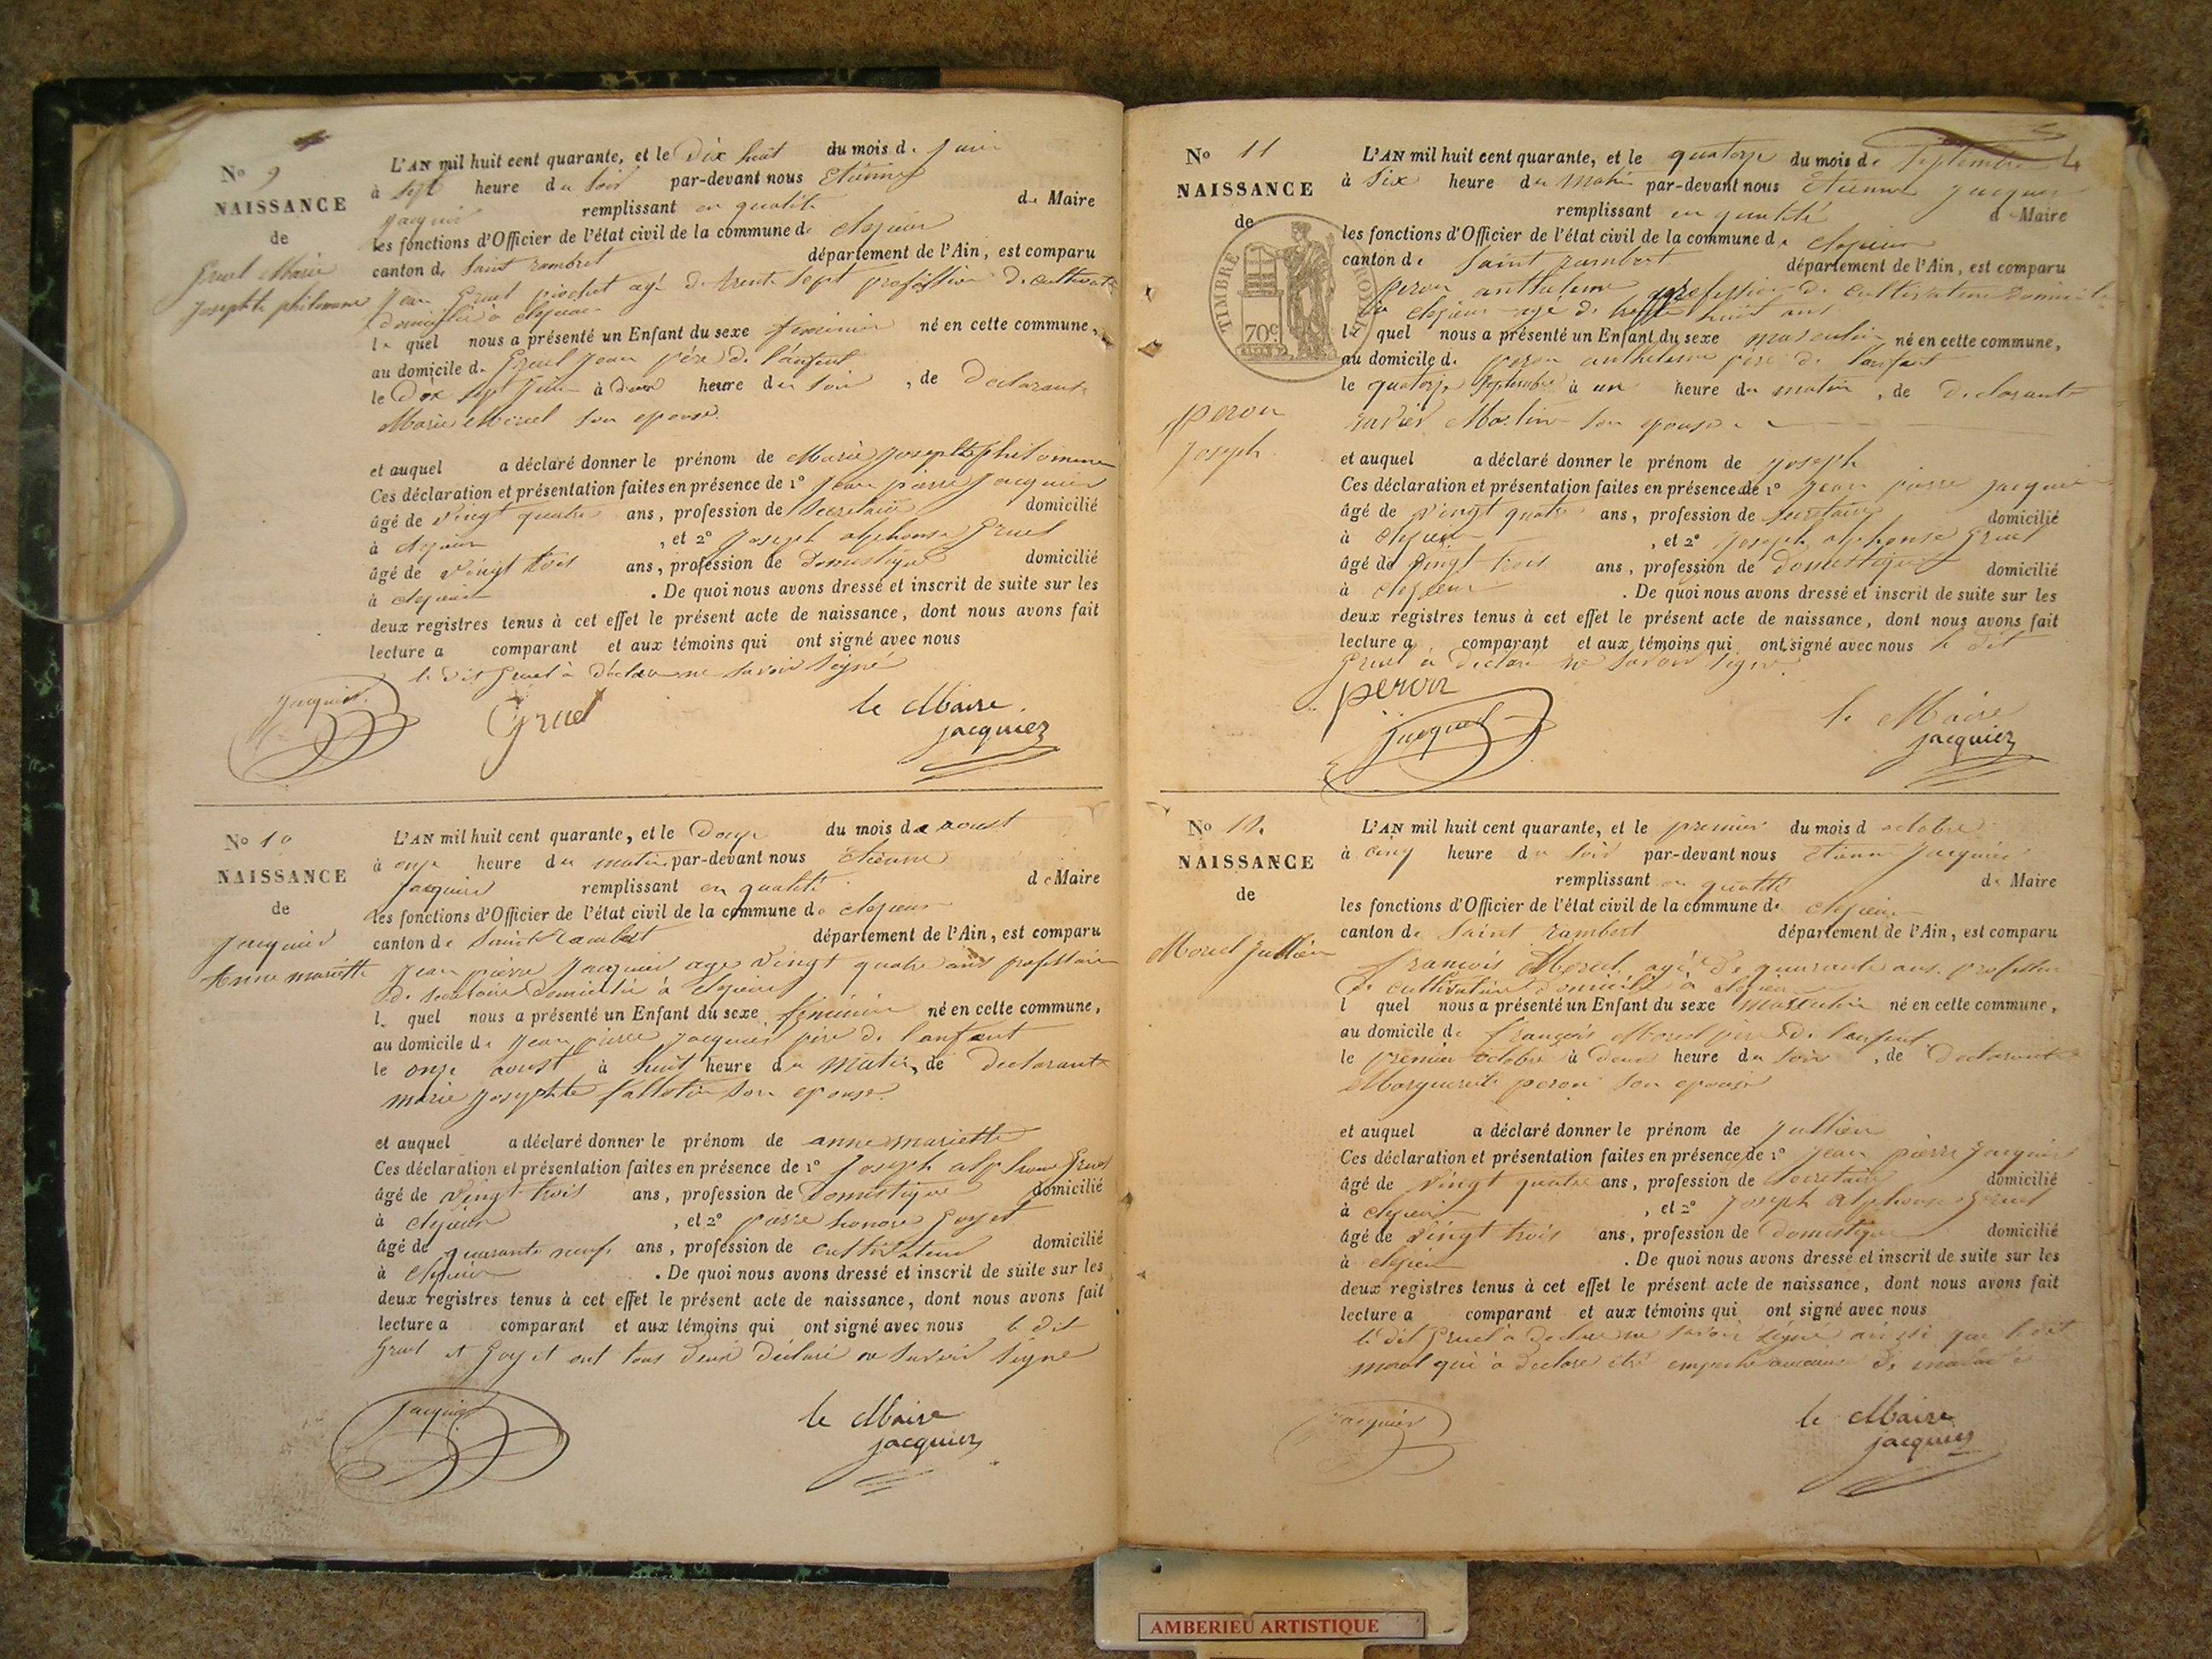 No 9
NAISSANCE
de
Gruel Marie
Josephte philomene
L'AN mil huit cent quarante, et le Dix huit du mois de Juin
à Sept heure du Soir par-devant nous Etienne
Jacquier remplissant en qualité de Maire
les fonctions d'Officier de l'état civil de la commune de
canton de Saint rambert département de l'Ain, est comparu
Jean Gruel piochet agé de trente Sept profession de cultivat
domicilié à
le quel nous a présenté un Enfant du sexe feminin né en cette commune,
au domicile de Gruel Jean père de l'enfant
le Dix Sept Juin à deux heure du Soir, de Declarant
Marie son epouse
et auquel a déclaré donner le prénom de Marie Josephte philomene
Ces déclaration et présentation faites en présence de 1° Jean pierre Jacquier
âgé de Vingt quatre ans, profession de Secretaire domicilié
à , et 2° Joseph alphonse Gruel
âgé de Vingt trois ans, profession de Domestique domicilié
à . De quoi nous avons dressé et inscrit de suite sur les
deux registres tenus à cet effet le présent acte de naissance, dont nous avons fait
lecture a comparant et aux témoins qui ont signé avec nous
le dit Gruel à déclare ne savoir Signé
Jacquier Gruel le Maire
jacquier
No 10
NAISSANCE
de
Jacquier
Anne mariette
L'AN mil huit cent quarante, et le Douze du mois de aoust
à onze heure du matin par-devant nous Etienne
Jacquier remplissant en qualité de Maire
les fonctions d'Officier de l'état civil de la commune de
canton de Saint Rambert département de l'Ain, est comparu
Jean pierre Jacquier age Vingt quatre ans
de secretaire domicilié à
le quel nous a présenté un Enfant du sexe feminin né en cette commune,
au domicile de Jean pierre Jacquier père de l'enfant
le onze aoust à huit heure du Matin, de Declarant
marie Josephte son epouse
et auquel a déclaré donner le prénom de anne mariette
Ces déclaration et présentation faites en présence de 1° Joseph alphonse Gruel
âgé de Vingt trois ans, profession de Domestique domicilié
à , et 2° pierre honore Goyet
âgé de quarante neuf ans, profession de cultivateur domicilié
à . De quoi nous avons dressé et inscrit de suite sur les
deux registres tenus à cet effet le présent acte de naissance, dont nous avons fait
lecture a comparant et aux témoins qui ont signé avec nous le dit
Gruel et Goyet ont tous deux Déclaré ne savoir Signé
Jacquier le Maire
jacquier
No 11
NAISSANCE
de
TIMBRE ROYAL
70c
peron
Joseph
L'AN mil huit cent quarante, et le quatorze du mois de Septembre
à Six heure du Matin par-devant nous Etienne Jacquier
remplissant en qualité de Maire
les fonctions d'Officier de l'état civil de la commune de
canton de Saint rambert département de l'Ain, est comparu
peron anthelme profession de cultivateur domicilié
à agé de huit ans
le quel nous a présenté un Enfant du sexe masculin né en cette commune,
au domicile de peron anthelme père de l'enfant
le quatorze Septembre à un heure du matin, de Declarant
Martin son epouse
et auquel a déclaré donner le prénom de Joseph
Ces déclaration et présentation faites en présence de 1° Jean pierre Jacquier
âgé de Vingt quatre ans, profession de Secretaire domicilié
à , et 2° Joseph alphonse Gruel
âgé de Vingt trois ans, profession de Domestique domicilié
à . De quoi nous avons dressé et inscrit de suite sur les
deux registres tenus à cet effet le présent acte de naissance, dont nous avons fait
lecture a comparant et aux témoins qui ont signé avec nous le dit
Gruel à declare ne savoir Signé
peron
Jacquier le Maire
jacquier
No 12
NAISSANCE
de
Morel Jullien
L'AN mil huit cent quarante, et le premier du mois d octobre
à cinq heure du Soir par-devant nous Etienne Jacquier
remplissant en qualité de Maire
les fonctions d'Officier de l'état civil de la commune de
canton de Saint rambert département de l'Ain, est comparu
françois Morel agé de quarante ans profession
de cultivateur domicilié à
l quel nous a présenté un Enfant du sexe Masculin né en cette commune,
au domicile de françois Morel père de l'enfant
le premier octobre à Deux heure du Soir, de Declarant
Marguerite peron son epouse
et auquel a déclaré donner le prénom de Jullien
Ces déclaration et présentation faites en présence de 1° Jean pierre Jacquier
âgé de Vingt quatre ans, profession de Secretaire domicilié
à , et 2° Joseph alphonse Gruel
âgé de Vingt trois ans, profession de Domestique domicilié
à . De quoi nous avons dressé et inscrit de suite sur les
deux registres tenus à cet effet le présent acte de naissance, dont nous avons fait
lecture a comparant et aux témoins qui ont signé avec nous
le dit Gruel à Declare ne savoir Signé ainsi que le dit
morel qui à declare été empeché de
Jacquier le Maire
jacquier
AMBERIEU ARTISTIQUE